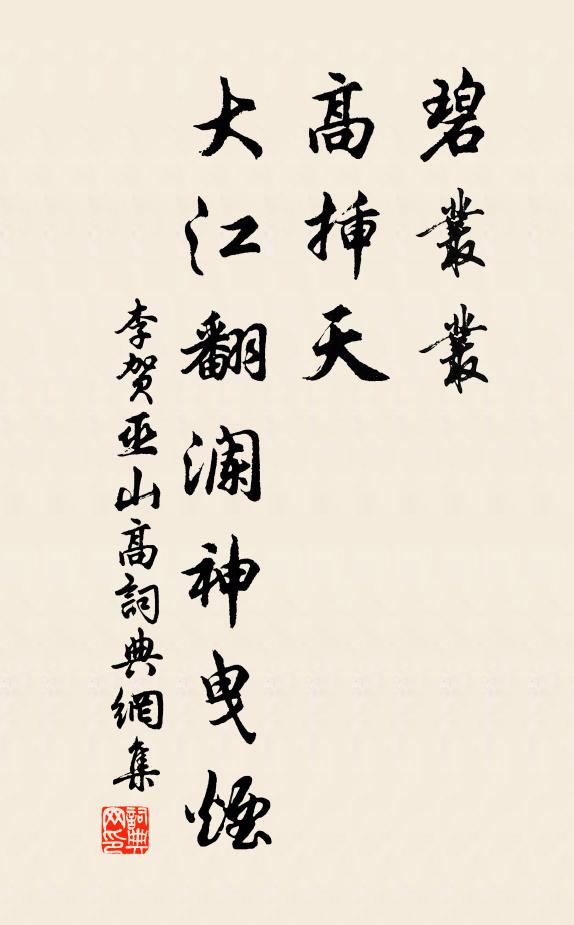 碧叢叢
高挿天
大江翻瀾神曳煙
李賀巫山高詞典網集
詞典網印